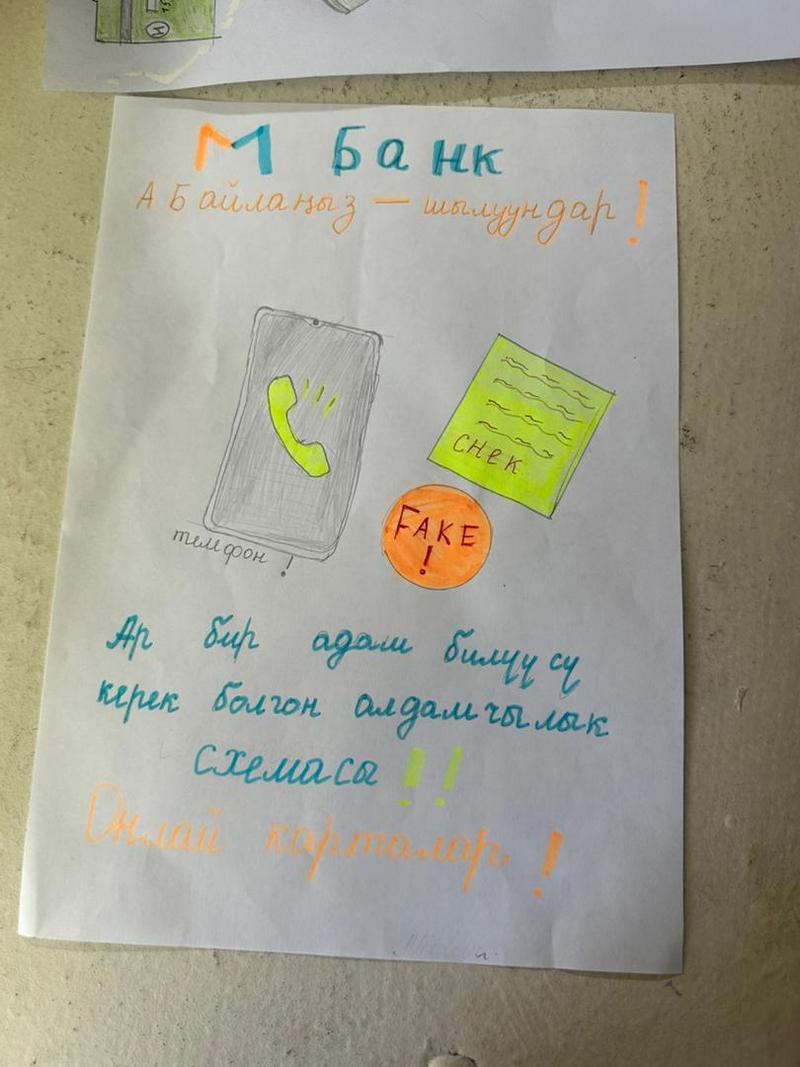 М Банк
А Байлаңыз — шылуундар!
снек
FAKE
!
телефон!
Ар бир адам билүү сү
керек болгон алдамчылык
схемасы!!
Онлай карталар!